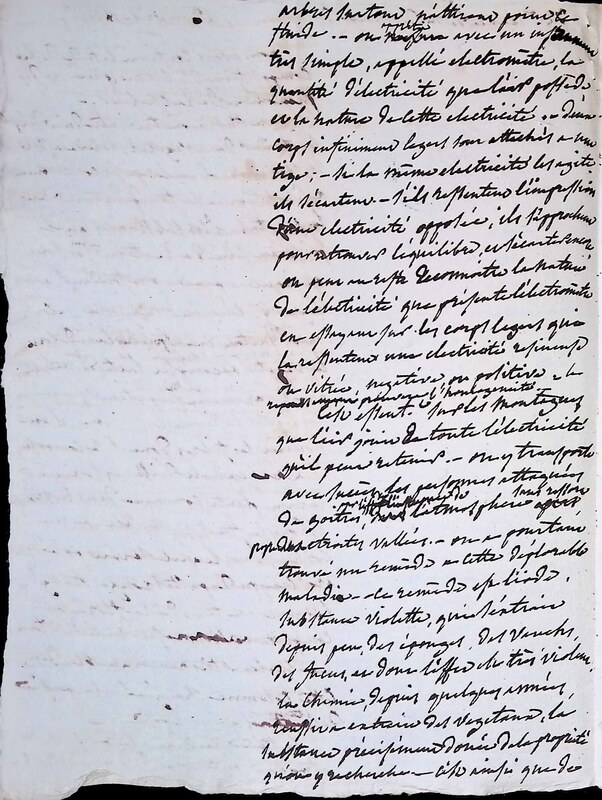 arbres surtout l'attirent pour le
fluide. — on mesure avec un instrument
très simple, appellé electromètre, la
quantité d'électricité que l'air possède
et la nature de cette electricité. — Deux
corps infiniment legers sont attachés a une
tige; — si la même electricité les agite
ils s'écartent. — s'ils ressentent l'impression
d'une electricité opposée, ils s'approchent
pour retrouver l'équilibre, et s'écartent encore
on peut au reste reconnoitre la nature
de l'électricité que présente l'électromètre
en essayant sur les corps legers qui
la ressentent une electricité resineuse
ou vitrée, negative ou positive. — la
l'homogeneité.
C'est effect. sur les montagnes
que l'air jouit de toute l'électricité
qu'il peut retenir. — on y transporte
avec succès les personnes attaquées
sans ressort
de goitres, l'atmosphère
des etroites vallées. — on a pourtant
trouvé un remède a cette deplorable
maladie — ce remède est l'iode,
substance violette, qui s'extrait
depuis peu, des éponges, des varechs,
des fucus, et dont l'effet est très violent.
la chimie depuis quelques années,
reussit a extraire des vegetaux, la
substance précisément douée de la propriété
qu'on y recherche — c'est ainsi que de